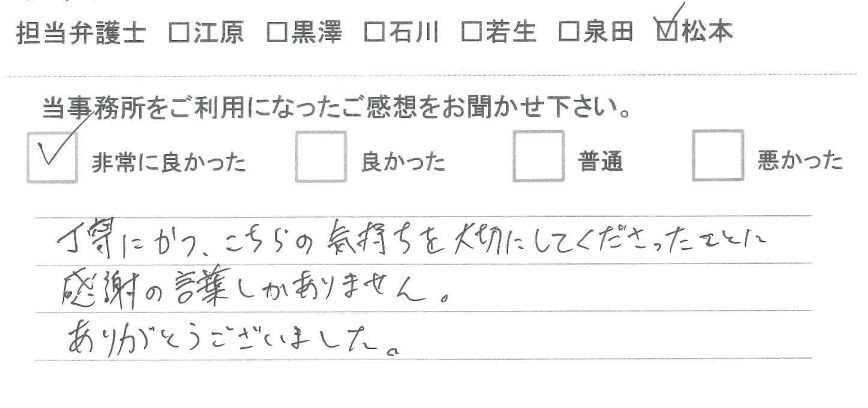 担当弁護士 □江原 □黒澤 □石川 □若生 □泉田 ☑松本
当事務所をご利用になったご感想をお聞かせ下さい。
☑ 非常に良かった □ 良かった □ 普通 □ 悪かった
丁寧にかつ、こちらの気持ちを大切にしてくださったことに
感謝の言葉しかありません。
ありがとうございました。